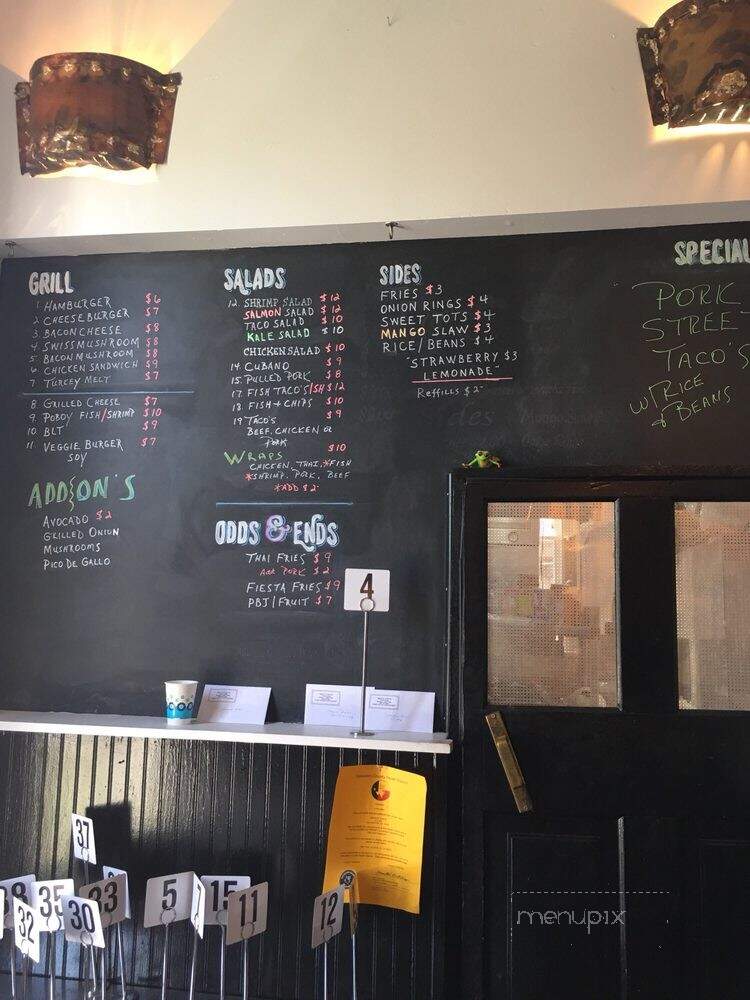 GRILL
1. HAMBURGER $6
2 CHEESEBURGER $7
3. BACON CHEESE $8
4. SWISS MUSHROOM $8
5. BACON MUSHROOM $8
6 CHICKEN SANDWICH $9
7 TURKEY MELT $7
8. GRILLED CHEESE $7
9. POBOY FISH/SHRIMP $10
10. BLT $9
11. VEGGIE BURGER $7
SOY
ADD ON'S
AVOCADO $2
GRILLED ONIUN
MUSHROOMS
PICO DE GALLO
SALADS
12. SHRIMP SALAD $12
SALMON SALAD $12
TACO SALAD $10
KALE SALAD $10
CHICKEN SALAD $10
14. CUBANO $9
15. PULLED PORK $8
17. FISH TACO'S/SH $12
18. FISH + CHIPS $10
19 TACO'S $9
BEEF, CHICKEN OR
PORK
WRAPS $10
CHICKEN, THAI, *FISH
*SHRIMP, PORK, BEEF
*ADD $2
ODDS & ENDS
THAI FRIES $9
ADD PORK $2
FIESTA FRIES $9
PBJ/FRUIT $7
SIDES
FRIES $3
ONION RINGS $4
SWEET TOTS $4
MANGO SLAW $3
RICE/BEANS $4
"STRAWBERRY $3
LEMONADE"
REFFILLS $2
SPECIAL
"PORK
STREET
TACO'S
W/ RICE
& BEANS
4
37
35
33
5
15
11
12
32
30
menupix